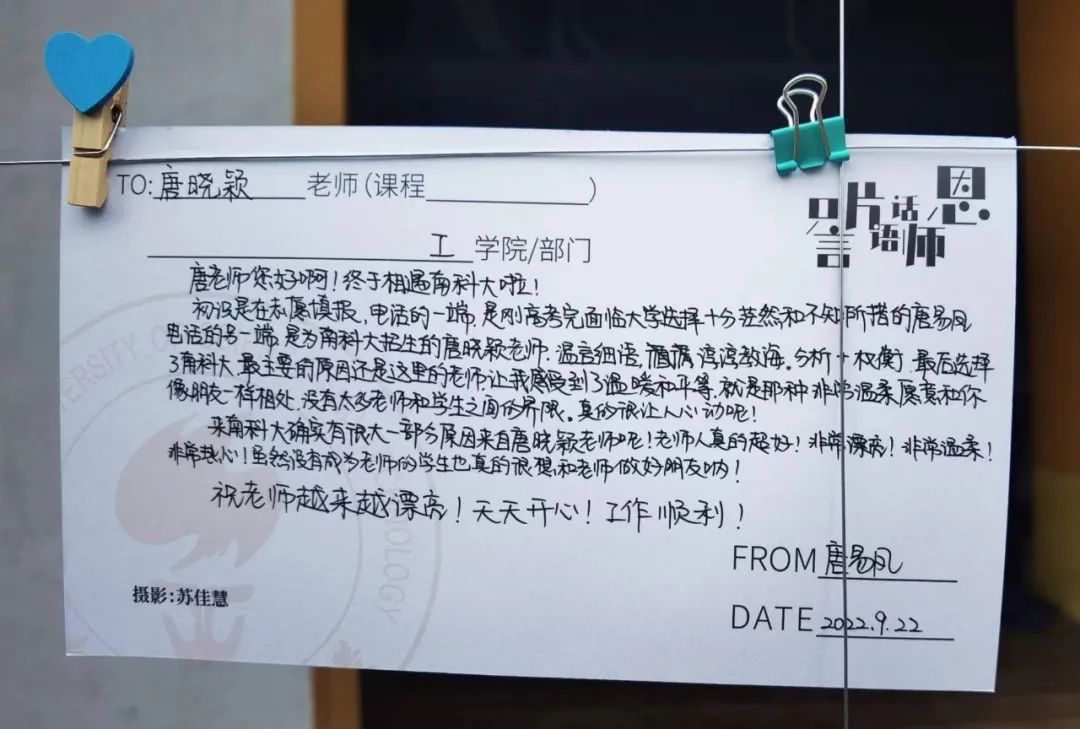 TO:唐晓颖 老师(课程 )
只言片语 话恩师
工 学院/部门
唐老师您好啊！终于相遇南科大啦！
初识是在志愿填报，电话的一端，是刚高考完面临大学选择十分茫然和不知所措的唐易风
电话的另一端，是为南科大招生的唐晓颖老师，温言细语，谆谆教诲。分析+权衡，最后选择
了南科大，最主要的原因还是这里的老师让我感受到了温暖和平等，就是那种非常温柔愿意和你
像朋友一样相处，没有太多老师和学生之间的界限。真的很让人心动呢！
来南科大确实有很大一部分原因来自唐晓颖老师呢！老师人真的超好！非常漂亮！非常温柔！
非常热心！虽然没有成为老师的学生也真的很想和老师做好朋友呐！
祝老师越来越漂亮！天天开心！工作顺利！
FROM 唐易风
摄影：苏佳慧
DATE 2022.9.22
UNIVERSITY OF
OLOGY